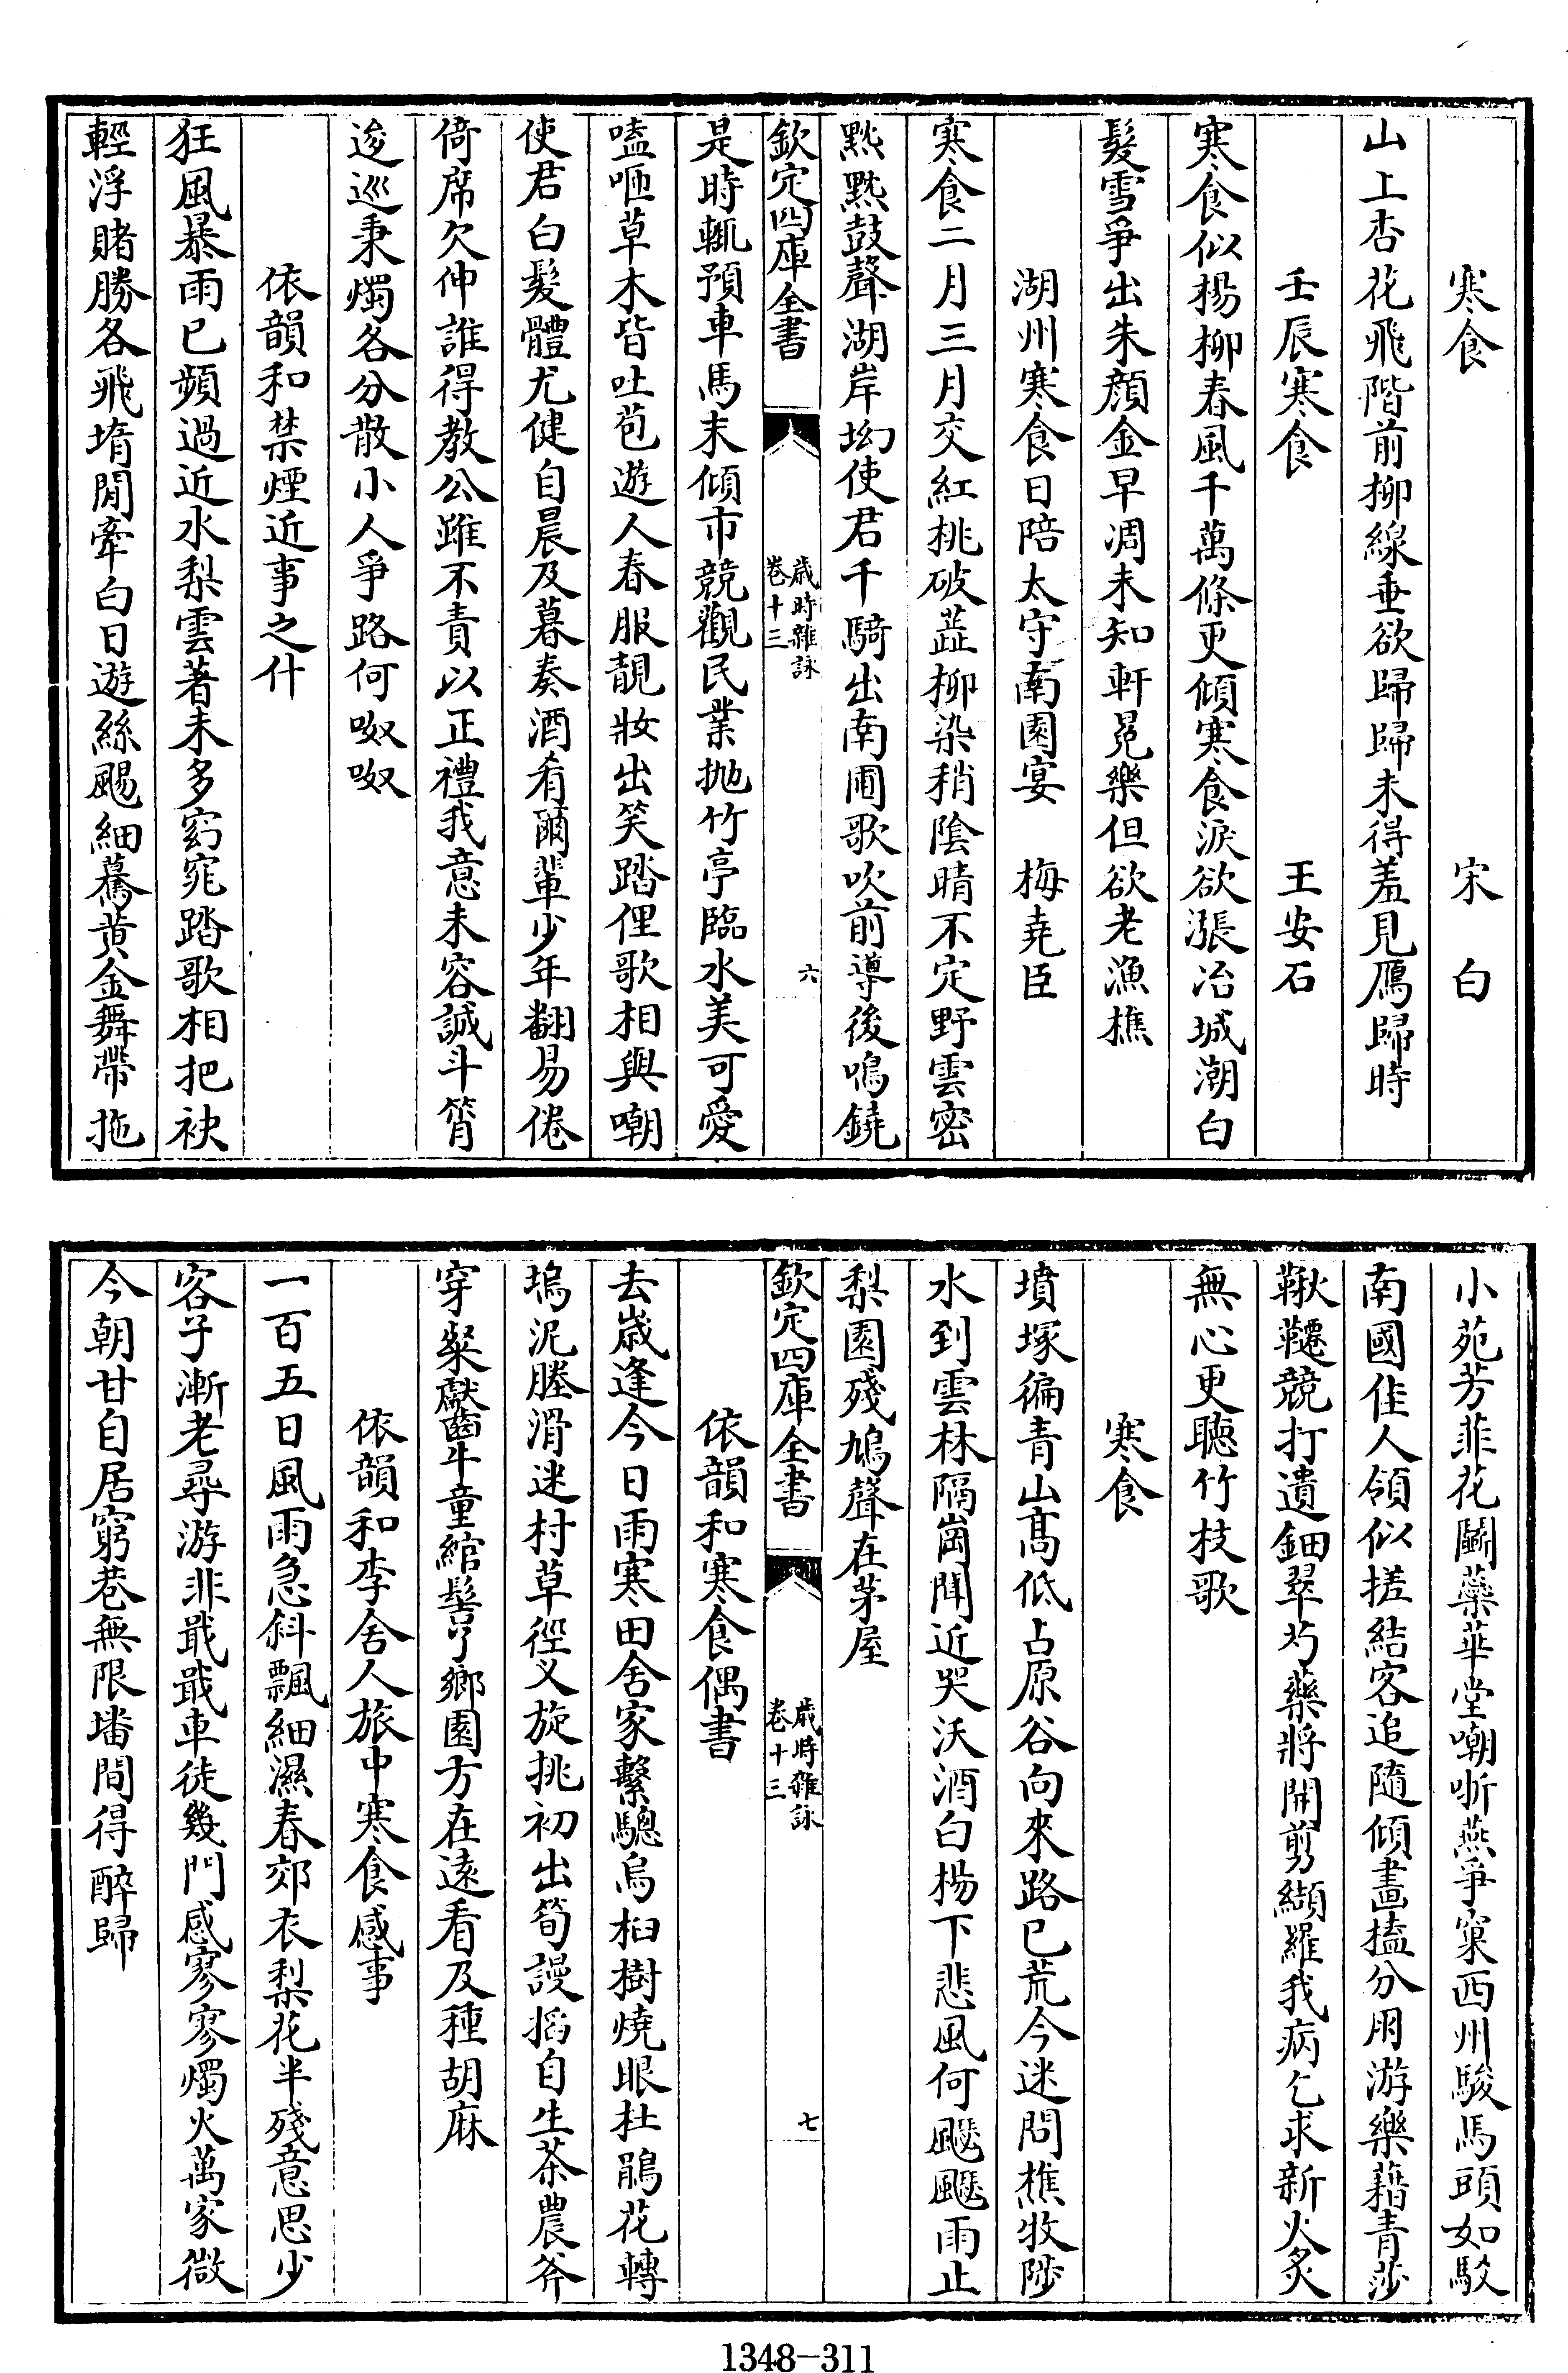 寒食　宋白
山上杏花飛階前柳線垂欲歸歸未得羞見鴈歸時
壬辰寒食　王安石
寒食似楊柳春風千萬條更傾寒食淚欲漲冶城潮白
髮雪爭出朱顔金早凋未知軒冕樂但欲老漁樵
湖州寒食日陪太守南園宴　梅堯臣
寒食二月三月交紅桃破蘂柳染稍陰晴不定野雲密
黙黙鼓聲湖岸坳使君千騎出南圃歌吹前導後鳴鐃
欽定四庫全書　歳時雜詠 卷十三　六
是時輒預車馬末傾市競觀民業抛竹亭臨水美可愛
嗑咂草木皆吐苞遊人春服靚妝出笑踏俚歌相與嘲
使君白髮體尤健自晨及暮奏酒肴爾輩少年翻易倦
倚席欠伸誰得教公雖不責以正禮我意未容誠斗筲
逡巡秉燭各分散小人爭路何呶呶
依韻和禁煙近事之什
狂風暴雨已頻過近水梨雲著未多窈窕踏歌相把袂
輕浮賭勝各飛堶閒牽白日遊絲颺細驀黄金舞帶拖
小苑芳菲花鬭藥華堂嘲哳燕爭窠西州駿馬頭如駮
南國佳人領似搓結客追隨傾畫榼分朋游樂藉青莎
鞦韆競打遺鈿翠芍藥將開剪纈羅我病乞求新火炙
無心更聽竹枝歌
寒食
墳塚徧青山髙低占原谷向來路已荒今迷問樵牧陟
水到雲林隔崗聞近哭沃酒白楊下悲風何颼颼雨止
梨園殘鳩聲在茅屋
欽定四庫全書　歳時雜詠 卷十三　七
依韻和寒食偶書
去歳逢今日雨寒田舍家繫驄烏桕樹燒眼杜鵑花轉
塢泥塍滑迷村草徑义旋挑初出筍謾搯自生茶農斧
穿粲獻齒牛童綰髻丫鄉園方在遠看及種胡麻
依韻和李舍人旅中寒食感事
一百五日風雨急斜飄細濕春郊衣梨花半殘意思少
客子漸老尋游非戢戢車徒幾門感寥寥燭火萬家微
今朝甘自居窮巷無限墦間得醉歸
1348-311